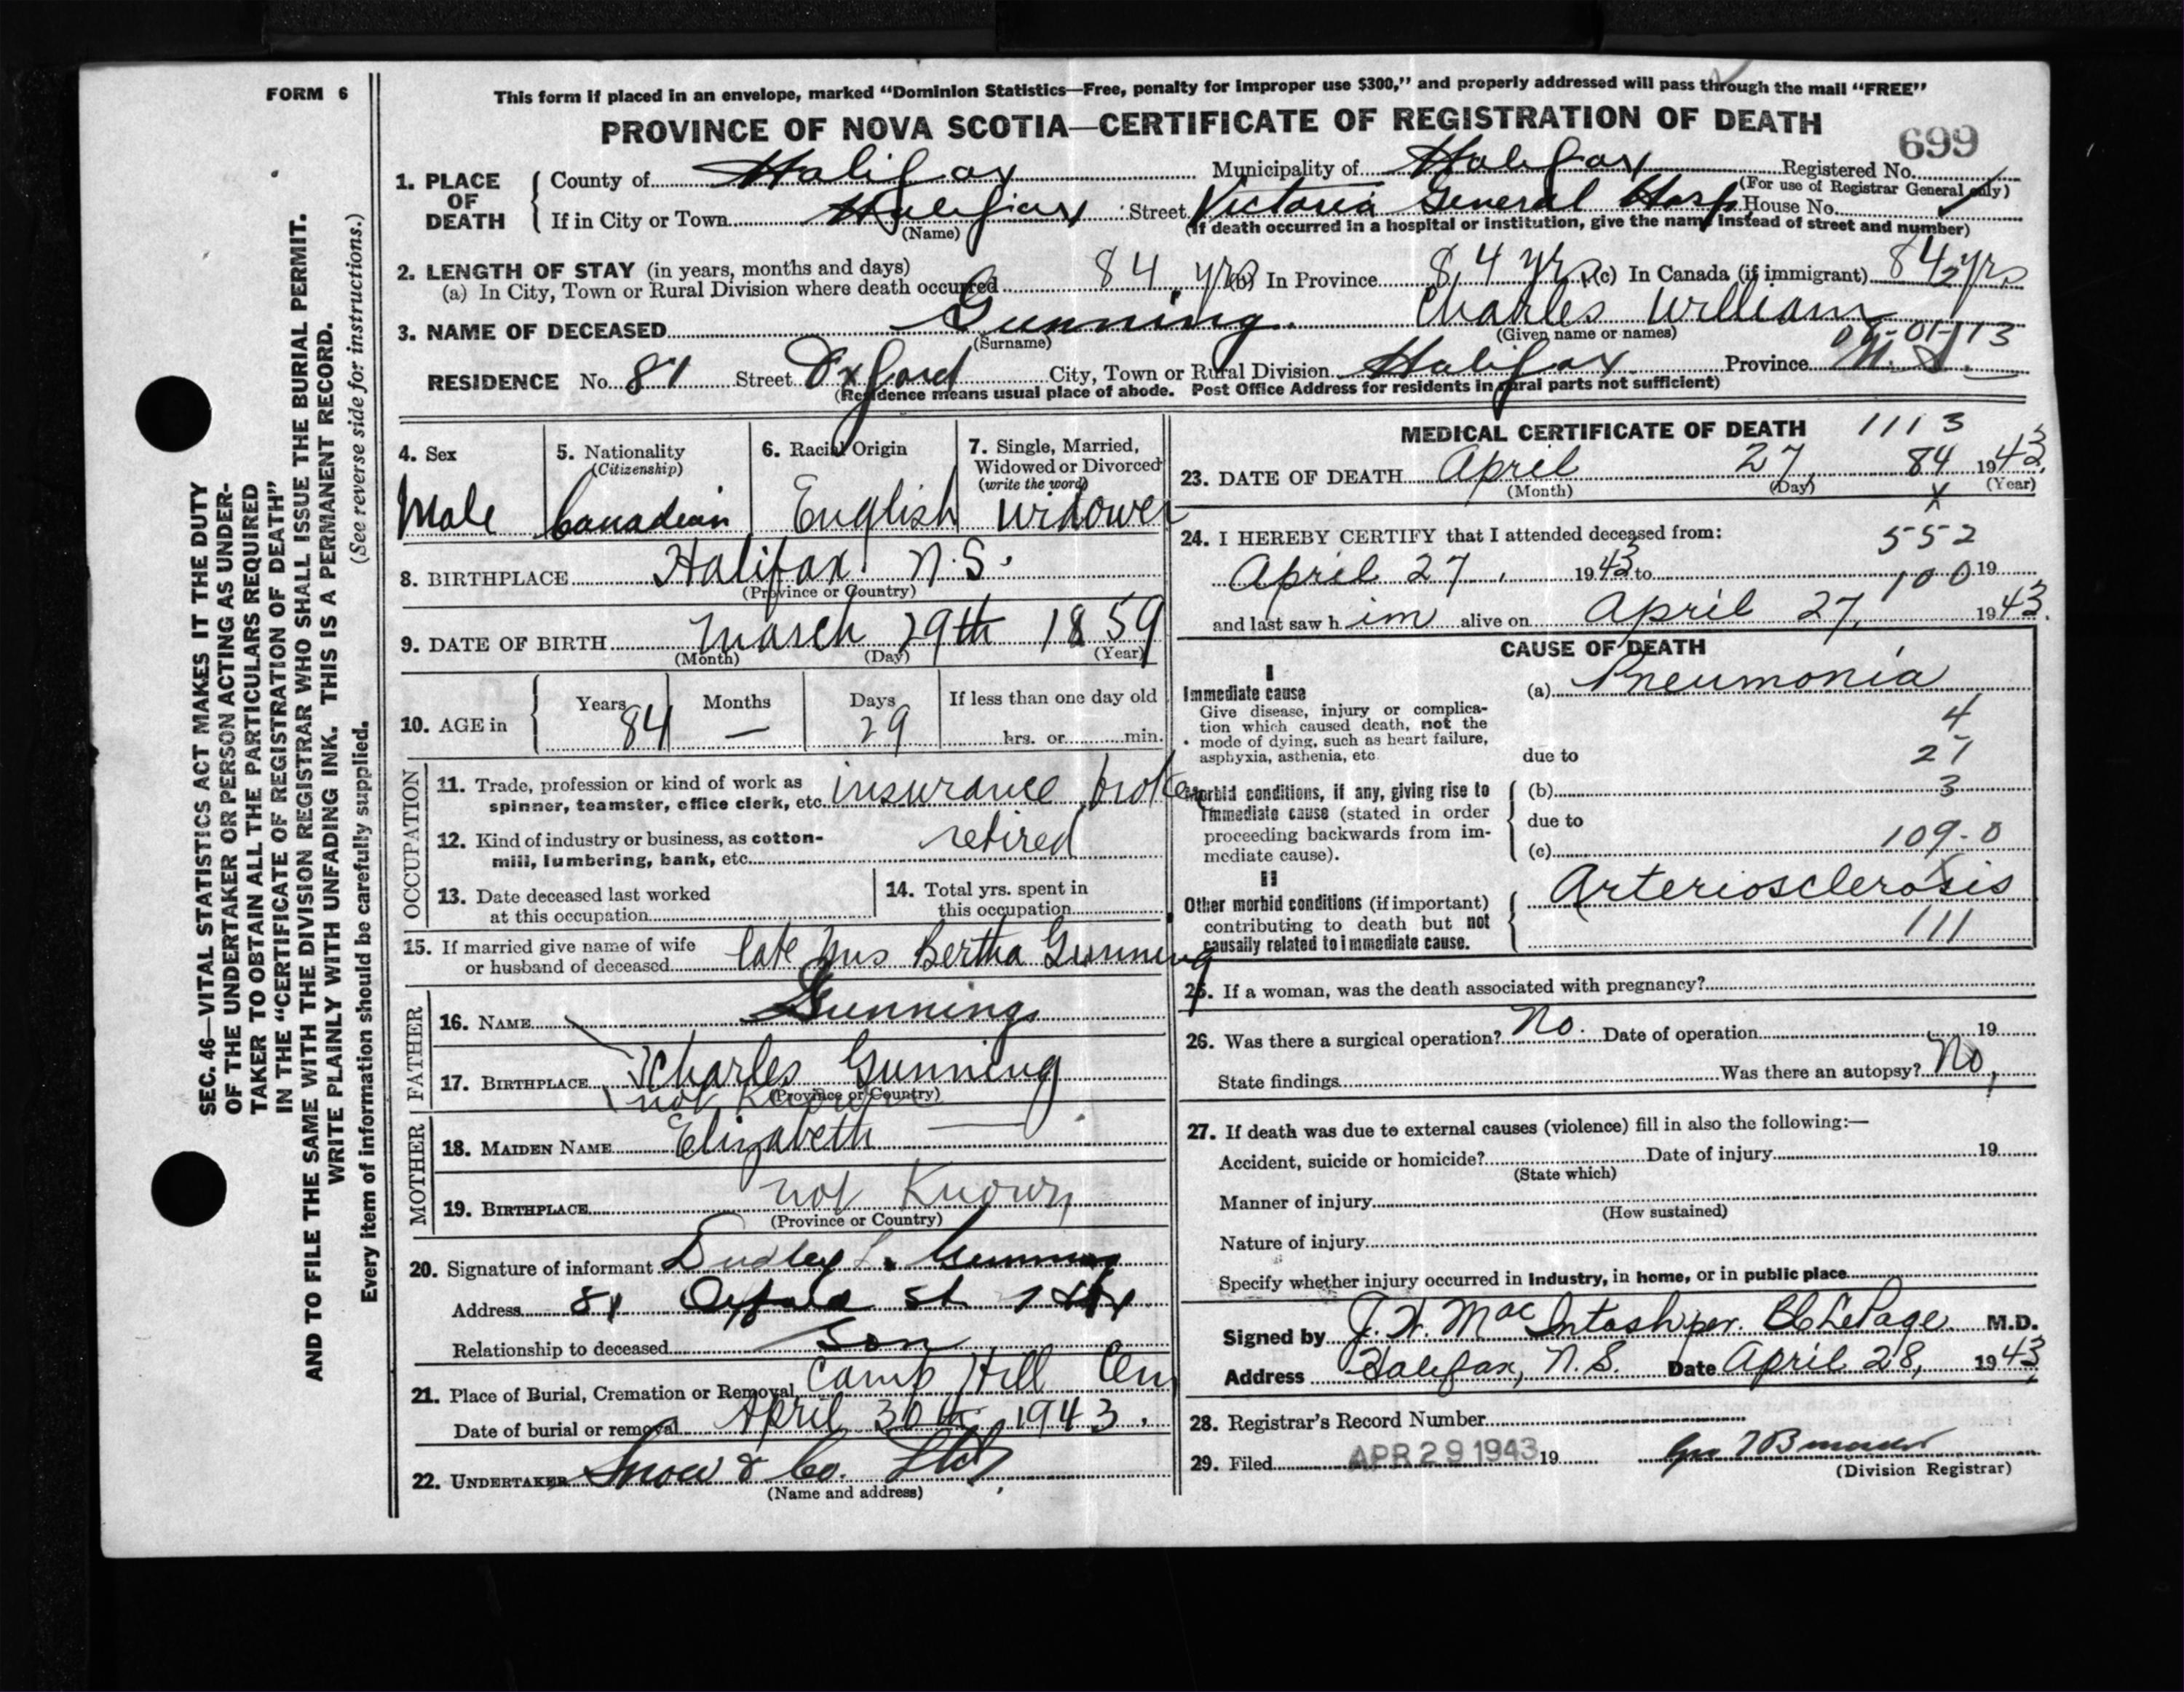 FORM 6
This form if placed in an envelope, marked “Dominion Statistics—Free, penalty for improper use $300,” and properly addressed will pass through the mail “FREE”
PROVINCE OF NOVA SCOTIA—CERTIFICATE OF REGISTRATION OF DEATH
699
1. PLACE OF DEATH
County of Halifax Municipality of Halifax Registered No.
(For use of Registrar General only)
If in City or Town Halifax Street Victoria General Hosp House No.
(Name) (If death occurred in a hospital or institution, give the name instead of street and number)
2. LENGTH OF STAY (in years, months and days)
(a) In City, Town or Rural Division where death occurred 84 yrs (b) In Province 84 yrs (c) In Canada (if immigrant) 84 yrs
3. NAME OF DECEASED Gunning Charles William
(Surname) (Given name or names)
01-113
RESIDENCE No. 81 Street Oxford City, Town or Rural Division Halifax Province N.S.
(Residence means usual place of abode. Post Office Address for residents in rural parts not sufficient)
4. Sex
Male
5. Nationality
(Citizenship)
Canadian
6. Racial Origin
English
7. Single, Married,
Widowed or Divorced
(write the word)
Widower
8. BIRTHPLACE Halifax N.S.
(Province or Country)
9. DATE OF BIRTH March 29th 1859
(Month) (Day) (Year)
10. AGE in
Years Months Days If less than one day old
84 — 29 hrs. or min.
OCCUPATION
11. Trade, profession or kind of work as
spinner, teamster, office clerk, etc. insurance broker
12. Kind of industry or business, as cotton-
mill, lumbering, bank, etc. retired
13. Date deceased last worked
at this occupation
14. Total yrs. spent in
this occupation
15. If married give name of wife
or husband of deceased late Mrs Bertha Gunning
FATHER
16. NAME Gunning
17. BIRTHPLACE Charles Gunning
not Known
(Province or Country)
MOTHER
18. MAIDEN NAME Elizabeth —
19. BIRTHPLACE not Known
(Province or Country)
20. Signature of informant Dudley L. Gunning
Address 81 Oxford St Hfx
Relationship to deceased Son
21. Place of Burial, Cremation or Removal Camp Hill Cem
Date of burial or removal April 30th, 1943.
22. UNDERTAKER Snow & Co. Ltd,
(Name and address)
MEDICAL CERTIFICATE OF DEATH 1113
23. DATE OF DEATH April 27, 84 1943.
(Month) (Day) (Year)
X
24. I HEREBY CERTIFY that I attended deceased from:
552
April 27, 1943 to 100 19
and last saw h im alive on April 27, 1943.
CAUSE OF DEATH
I
Immediate cause
Give disease, injury or complica-
tion which caused death, not the
mode of dying, such as heart failure,
asphyxia, asthenia, etc
(a) Pneumonia
4
due to 21
Morbid conditions, if any, giving rise to
immediate cause (stated in order
proceeding backwards from im-
mediate cause).
(b) 3
due to
(c) 109-0
II
Other morbid conditions (if important)
contributing to death but not
causally related to immediate cause.
Arteriosclerosis
111
25. If a woman, was the death associated with pregnancy?
26. Was there a surgical operation? No. Date of operation 19
State findings Was there an autopsy? No,
27. If death was due to external causes (violence) fill in also the following:—
Accident, suicide or homicide? Date of injury 19
(State which)
Manner of injury
(How sustained)
Nature of injury
Specify whether injury occurred in industry, in home, or in public place
Signed by J. W. MacIntosh per. LePage M.D.
Address Halifax, N.S. Date April 28, 1943,
28. Registrar's Record Number
29. Filed APR 29 1943 19
(Division Registrar)
SEC. 46—VITAL STATISTICS ACT MAKES IT THE DUTY
OF THE UNDERTAKER OR PERSON ACTING AS UNDER-
TAKER TO OBTAIN ALL THE PARTICULARS REQUIRED
IN THE “CERTIFICATE OF REGISTRATION OF DEATH”
AND TO FILE THE SAME WITH THE DIVISION REGISTRAR WHO SHALL ISSUE THE BURIAL PERMIT.
WRITE PLAINLY WITH UNFADING INK. THIS IS A PERMANENT RECORD.
Every item of information should be carefully supplied. (See reverse side for instructions.)